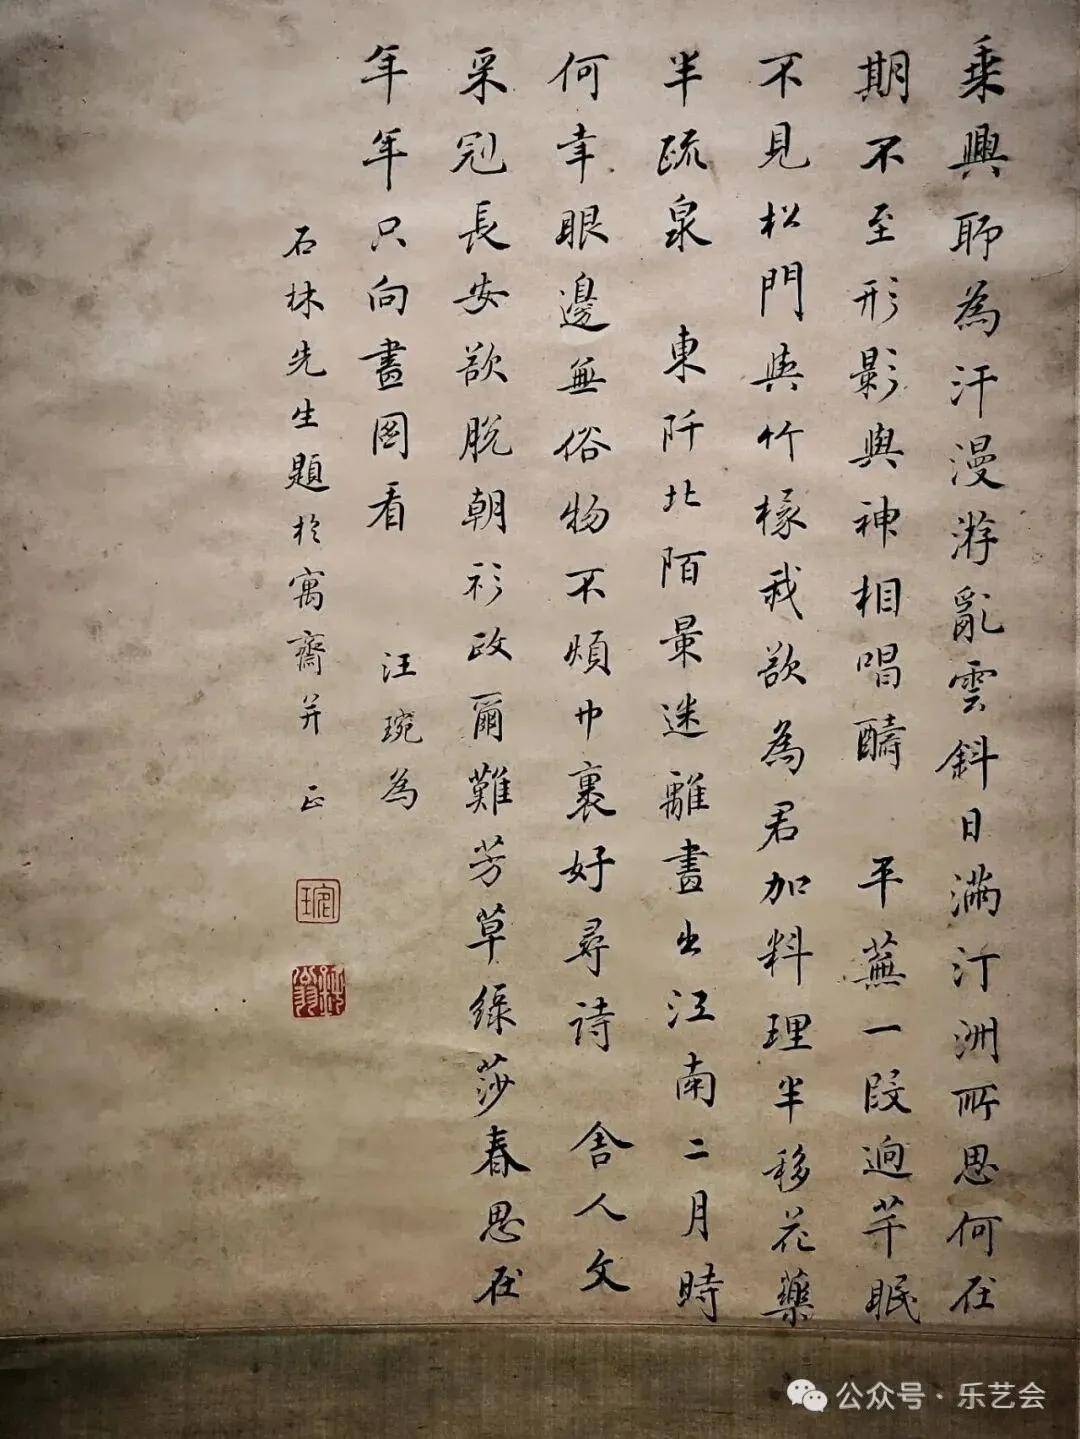 乘興聊為汗漫游亂雲斜日滿汀洲所思何在
期不至形影與神相唱酬　平蕪一段迥芊眠
不見松門與竹椽我欲為君加料理半移花藥
半疏泉　東阡北陌景迷離畫出江南二月時
何幸眼邊無俗物不煩巾裹好尋詩　舍人文
采冠長安欲脫朝衫政爾難芳草綠莎春思在
年年只向畫圖看　汪琬為
石林先生題於寓齋并正
琬
公众号·乐艺会